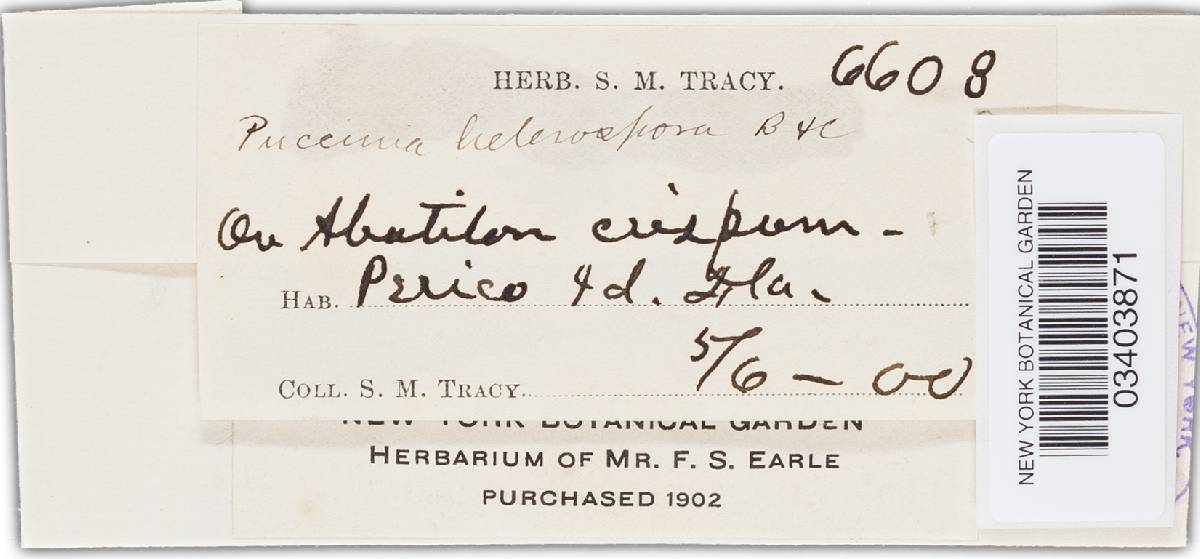 HERB. S. M. TRACY. 6608
Puccinia heterospora B & C
On Abutilon crispum -
HAB. Perico Id. Fla.
COLL. S. M. TRACY. 5/6 - 00
NEW YORK BOTANICAL GARDEN
HERBARIUM OF MR. F. S. EARLE
PURCHASED 1902
NEW YORK BOTANICAL GARDEN
03403871
NEW YORK